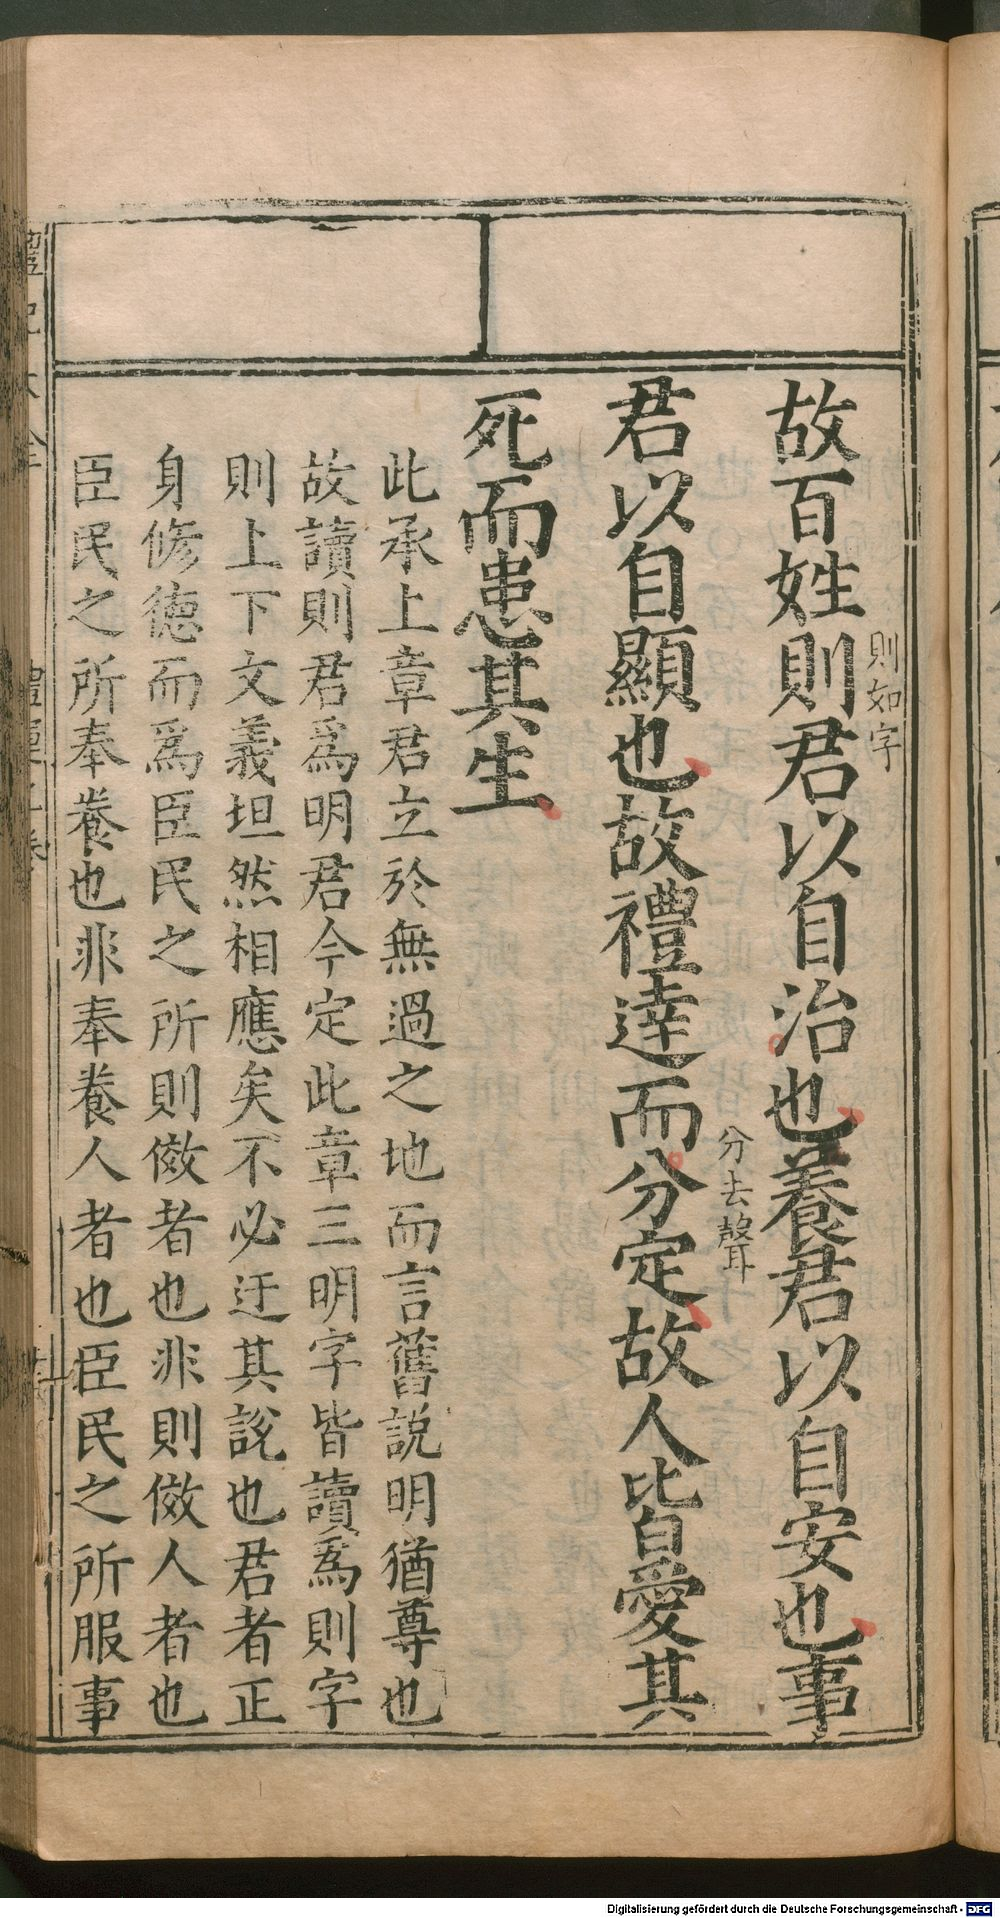 故百姓則君以自治也養君以自安也事
則如字
君以自顯也故禮達而分定故人皆愛其
分去聲
死而患其生
此承上章君立於無過之地而言舊説明猶尊也
故讀則君爲明君今定此章三明字皆讀爲則字
則上下文義坦然相應矣不必迂其説也君者正
身修德而爲臣民之所則傚者也非則傚人者也
臣民之所奉養也非奉養人者也臣民之所服事
Digitalisierung gefördert durch die Deutsche Forschungsgemeinschaft - DFG